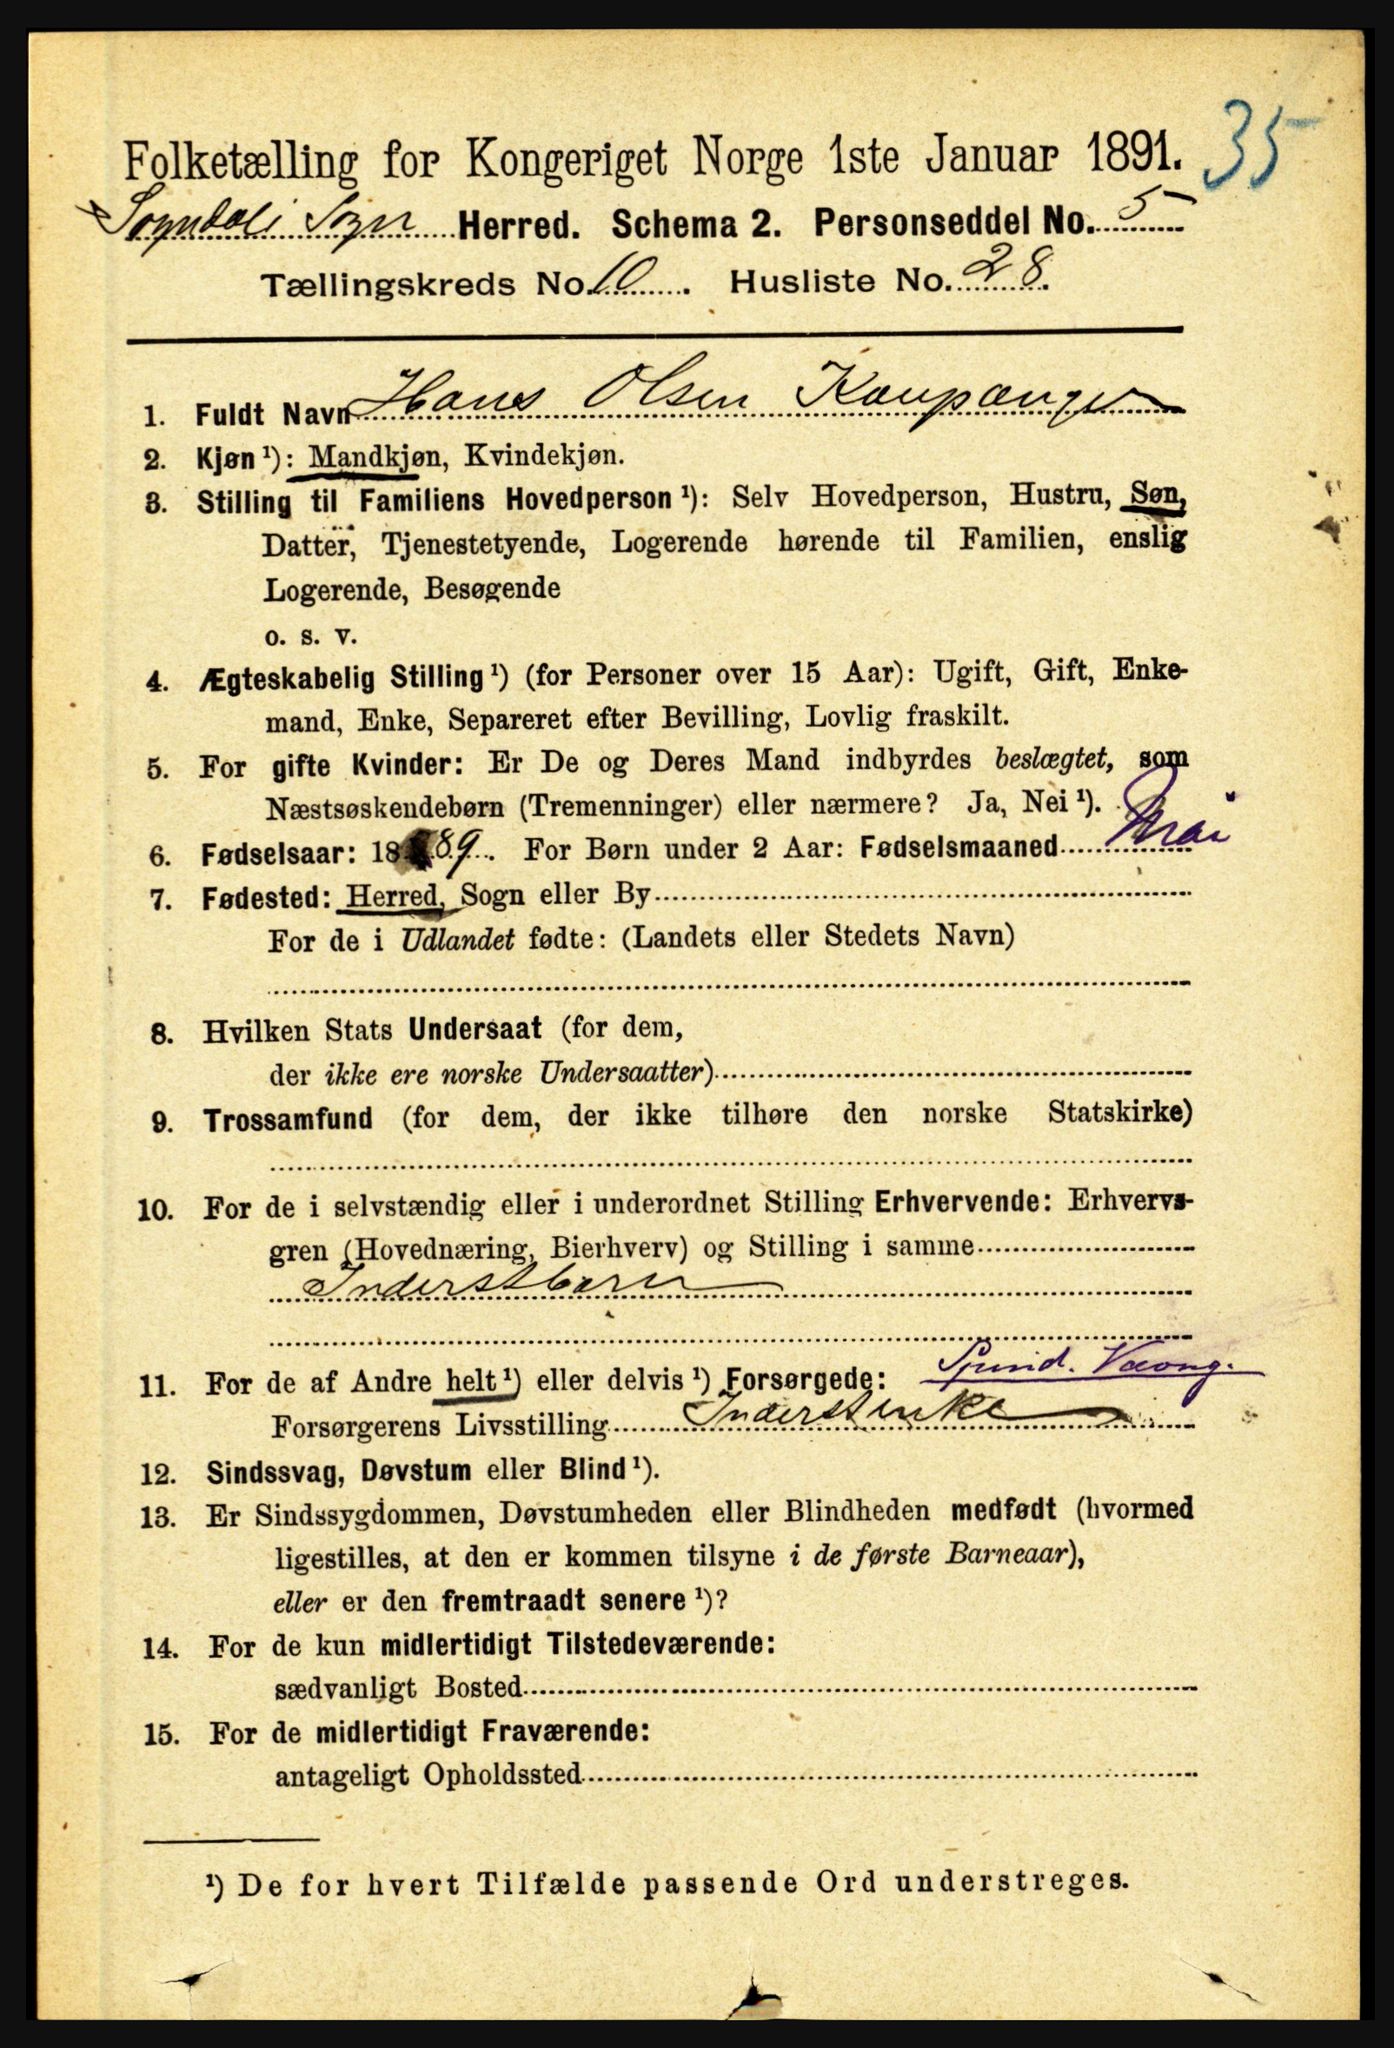 35
Folketælling for Kongeriget Norge 1ste Januar 1891.
Sogndal i Sogn Herred. Schema 2. Personseddel No. 5
Tællingskreds No. 10. Husliste No. 28.
1. Fuldt Navn Hans Olsen Kaupanger
2. Kjøn ¹): Mandkjøn, Kvindekjøn.
3. Stilling til Familiens Hovedperson ¹): Selv Hovedperson, Hustru, Søn,
Datter, Tjenestetyende, Logerende hørende til Familien, enslig
Logerende, Besøgende
o. s. v.
4. Ægteskabelig Stilling ¹) (for Personer over 15 Aar): Ugift, Gift, Enke-
mand, Enke, Separeret efter Bevilling, Lovlig fraskilt.
5. For gifte Kvinder: Er De og Deres Mand indbyrdes beslægtet, som
Næstsøskendebørn (Tremenninger) eller nærmere? Ja, Nei ¹).
6. Fødselsaar: 1889. For Børn under 2 Aar: Fødselsmaaned Mai
7. Fødested: Herred, Sogn eller By
For de i Udlandet fødte: (Landets eller Stedets Navn)
8. Hvilken Stats Undersaat (for dem,
der ikke ere norske Undersaatter)
9. Trossamfund (for dem, der ikke tilhøre den norske Statskirke)
10. For de i selvstændig eller i underordnet Stilling Erhvervende: Erhvervs-
gren (Hovednæring, Bierhverv) og Stilling i samme
Inderstbarn
11. For de af Andre helt ¹) eller delvis ¹) Forsørgede: Spind. Vævng.
Forsørgerens Livsstilling Inderstenke
12. Sindssvag, Døvstum eller Blind ¹).
13. Er Sindssygdommen, Døvstumheden eller Blindheden medfødt (hvormed
ligestilles, at den er kommen tilsyne i de første Barneaar),
eller er den fremtraadt senere ¹)?
14. For de kun midlertidigt Tilstedeværende:
sædvanligt Bosted
15. For de midlertidigt Fraværende:
antageligt Opholdssted
¹) De for hvert Tilfælde passende Ord understreges.